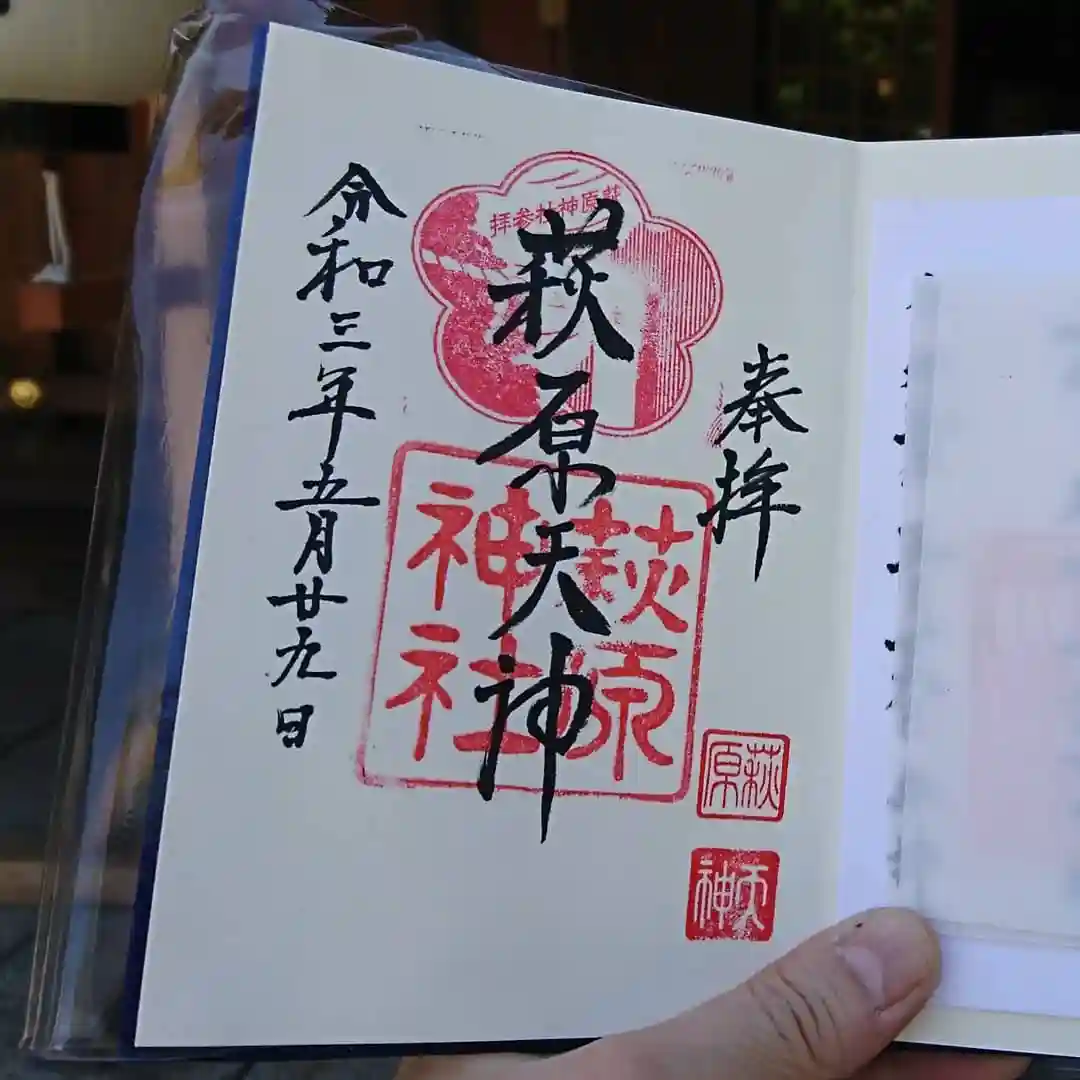 奉拝
萩原天神
令和三年五月廿九日
萩原神社参拝
萩原
神社
萩原
天神